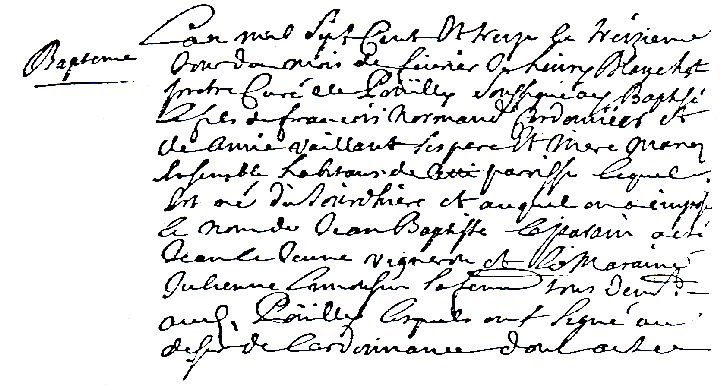 Bapteme
L'an mil sept Cent Et treze le treizieme
Jour du mois de fevrier Je henry Blanchet
pretre Curé de Poüilly soussigné ay Baptisé
le fils de francois Normand Cordonnier et
de Anne vaillant ses pere Et Mere Mariez
Ensemble habitans de cette parisse lequel
Est né du Jour d'hier et auquel on a imposé
le nom de Jean Baptiste le parain a été
Jean le Jeune vigneron et la Maraine
Julienne sa femme tous deux de
Poüilly lesquels ont signé au
desir de l'ordonnance dont acte